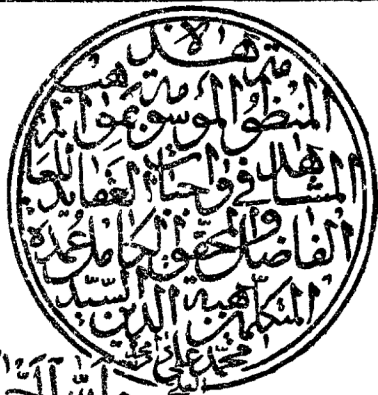 هذه
المنظومة الموسومة بمواهب
المشاهد في واجبات العقائد للعالم
الفاضل والمحقق الكامل عمدة
المتكلمين هبة الدين السيد
محمد علي